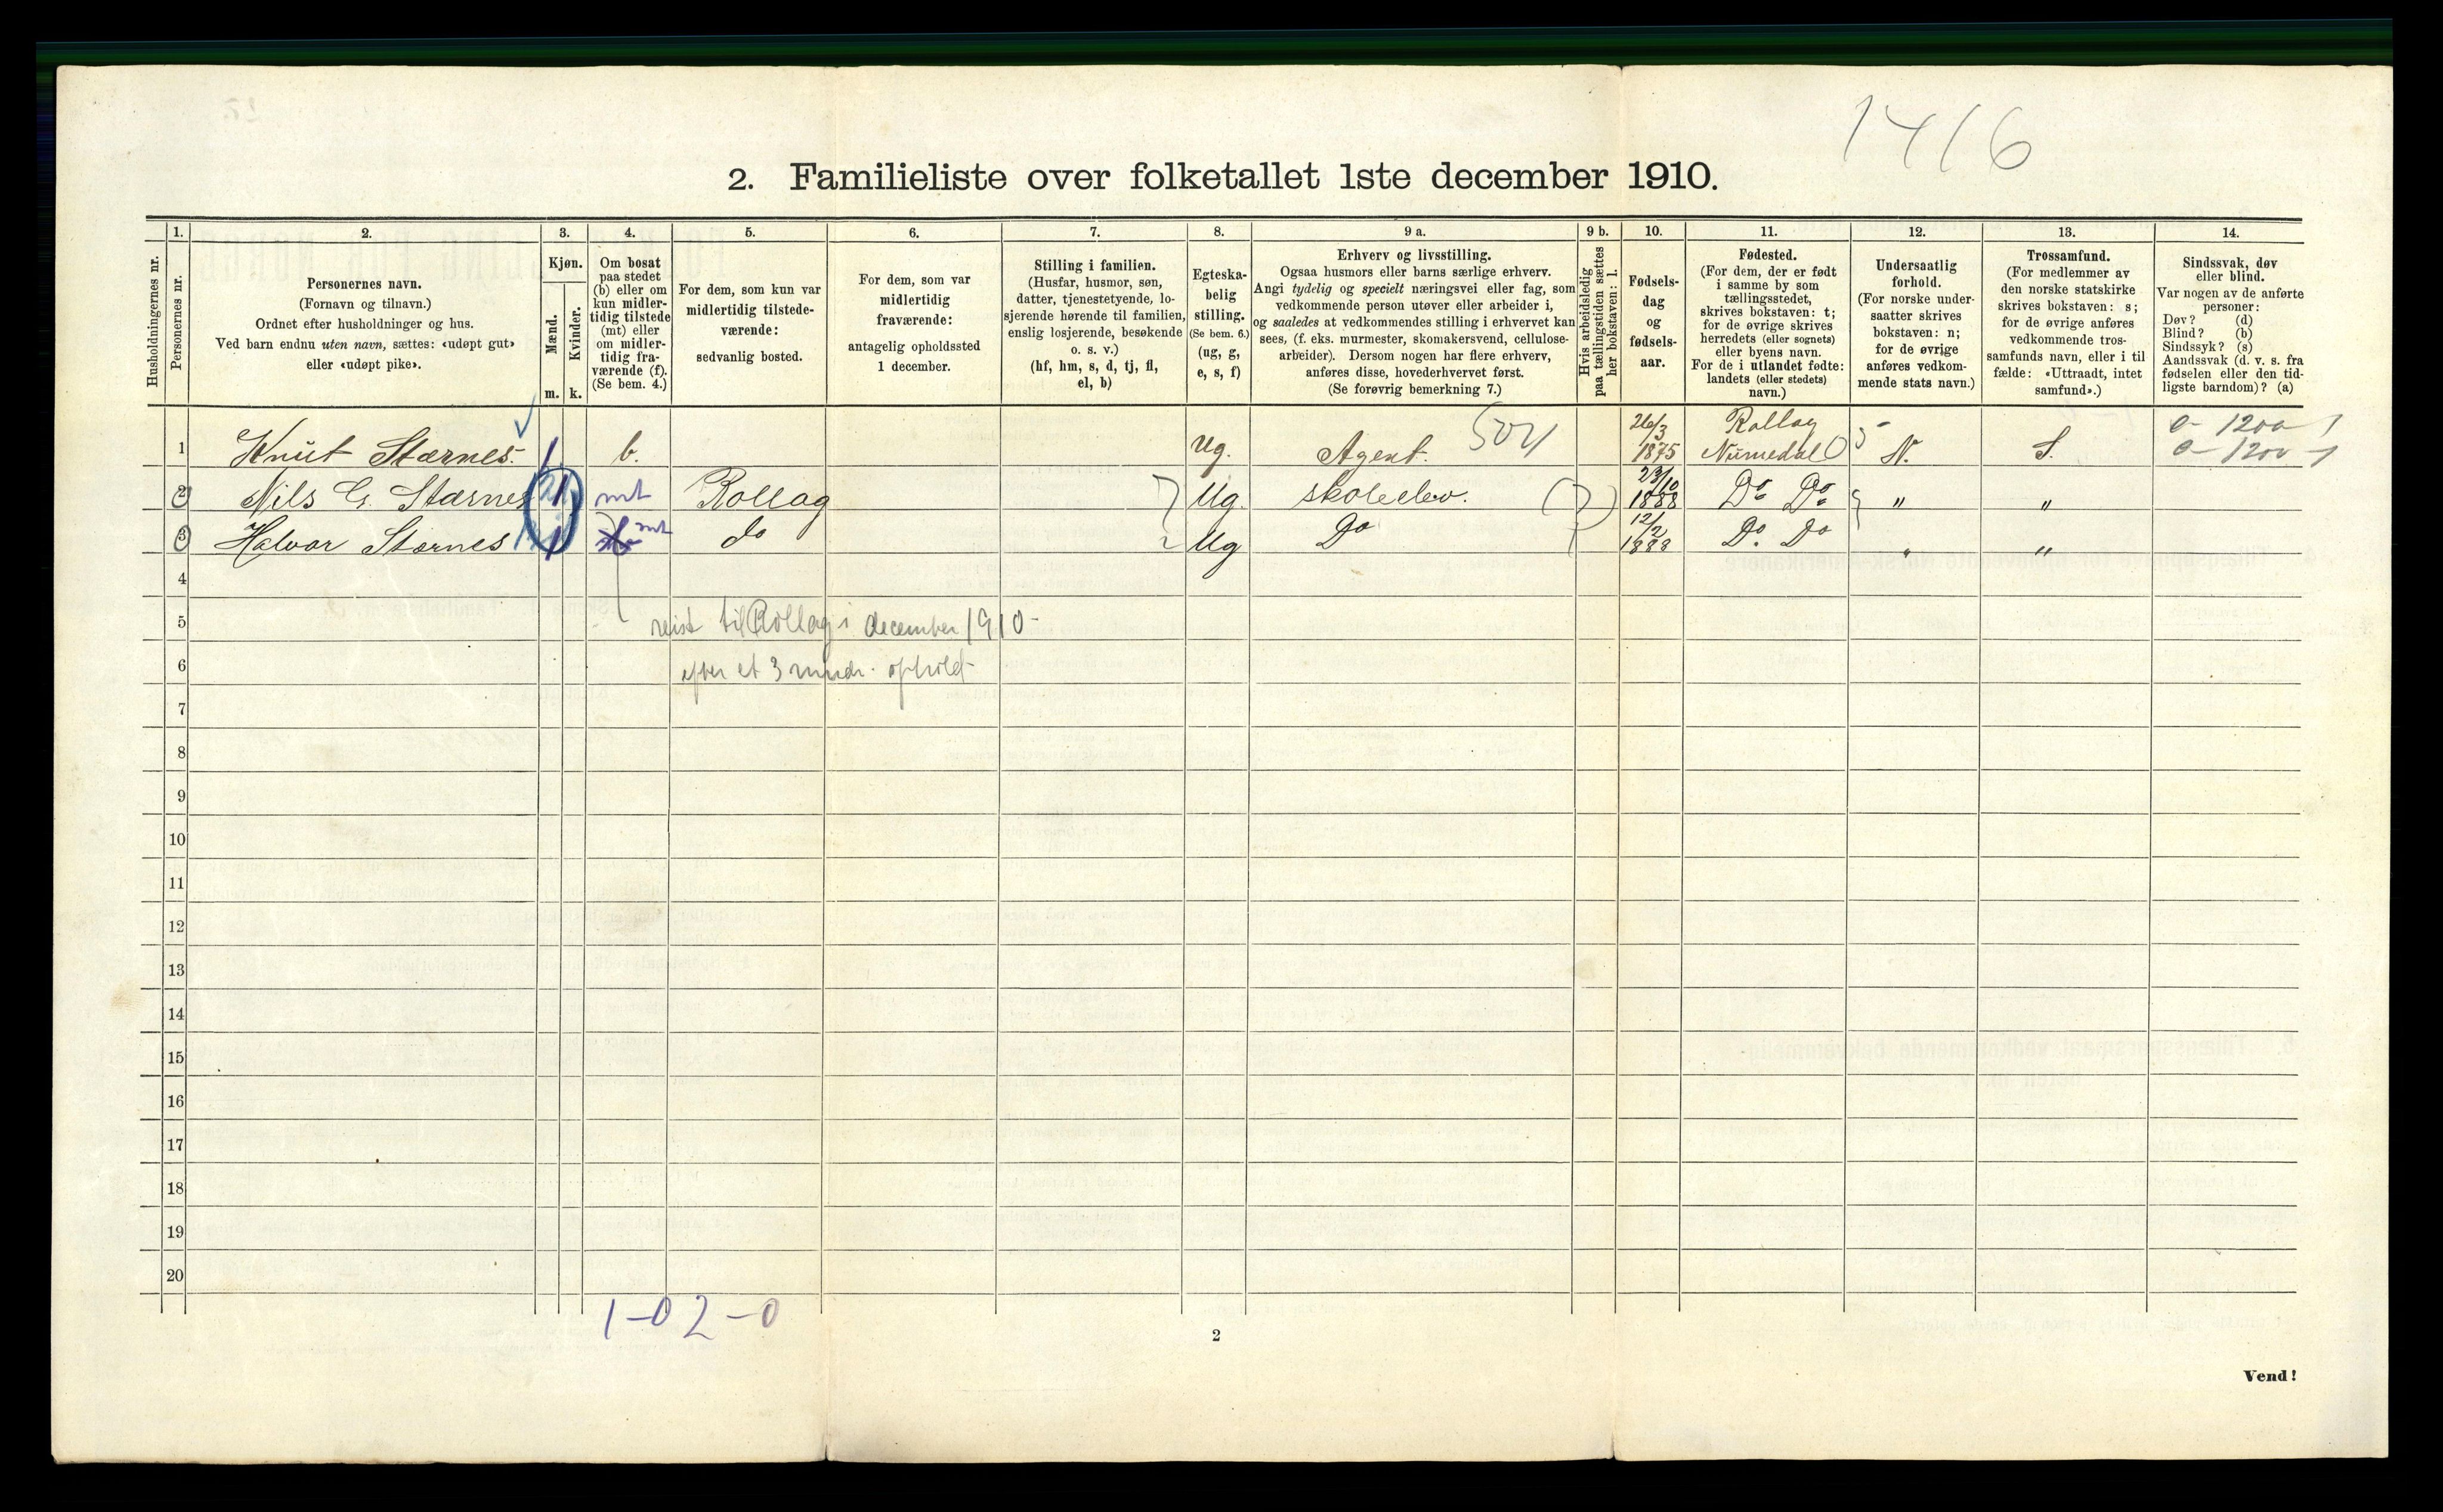 1416
2. Familieliste over folketallet 1ste december 1910.
Husholdningernes nr.
1.
Personernes nr.
2.
Personernes navn.
(Fornavn og tilnavn.)
Ordnet efter husholdninger og hus.
Ved barn endnu uten navn, sættes: «udøpt gut»
eller «udøpt pike».
3.
Kjøn.
Mænd.
Kvinder.
m. k.
4.
Om bosat
paa stedet
(b) eller om
kun midler-
tidig tilstede
(mt) eller
om midler-
tidig fra-
værende (f).
(Se bem. 4.)
5.
For dem, som kun var
midlertidig tilstede-
værende:
sedvanlig bosted.
6.
For dem, som var
midlertidig
fraværende:
antagelig opholdssted
1 december.
7.
Stilling i familien.
(Husfar, husmor, søn,
datter, tjenestetyende, lo-
sjerende hørende til familien,
enslig losjerende, besøkende
o. s. v.)
(hf, hm, s, d, tj, fl,
el, b)
8.
Egteska-
belig
stilling.
(Se bem. 6.)
(ug, g,
e, s, f)
9 a.
Erhverv og livsstilling.
Ogsaa husmors eller barns særlige erhverv.
Angi tydelig og specielt næringsvei eller fag, som
vedkommende person utøver eller arbeider i,
og saaledes at vedkommendes stilling i erhvervet kan
sees, (f. eks. murmester, skomakersvend, cellulose-
arbeider). Dersom nogen har flere erhverv,
anføres disse, hovederhvervet først.
(Se forøvrig bemerkning 7.)
9 b.
Hvis arbeidsledig
paa tællingstiden sættes
her bokstaven: l.
10.
Fødsels-
dag
og
fødsels-
aar.
11.
Fødested.
(For dem, der er født
i samme by som
tællingsstedet,
skrives bokstaven: t;
for de øvrige skrives
herredets (eller sognets)
eller byens navn.
For de i utlandet fødte:
landets (eller stedets)
navn.)
12.
Undersaatlig
forhold.
(For norske under-
saatter skrives
bokstaven: n;
for de øvrige
anføres vedkom-
mende stats navn.)
13.
Trossamfund.
(For medlemmer av
den norske statskirke
skrives bokstaven: s;
for de øvrige anføres
vedkommende tros-
samfunds navn, eller i til
fælde: «Uttraadt, intet
samfund».)
14.
Sindssvak, døv
eller blind.
Var nogen av de anførte
personer:
Døv? (d)
Blind? (b)
Sindssyk? (s)
Aandssvak (d. v. s. fra
fødselen eller den tid-
ligste barndom)? (a)
1 Knut Stærnes. 1 b. Ug. Agent. 26/3 1875 Rollag Numedal N. S.
2 Nils G. Stærnes 1 mt Rollag Ug. skoleelev. 23/10 1888 Do Do " "
3 Halvor Stærnes 1 mt do Ug Do 12/2 1888 Do. Do " "
4
5 reist til Rollag i december 1910-
6 efter et 3 mndr. ophold
7
8
9
10
11
12
13
14
15
16
17
18
19
20
1-0 2-0
2
Vend!